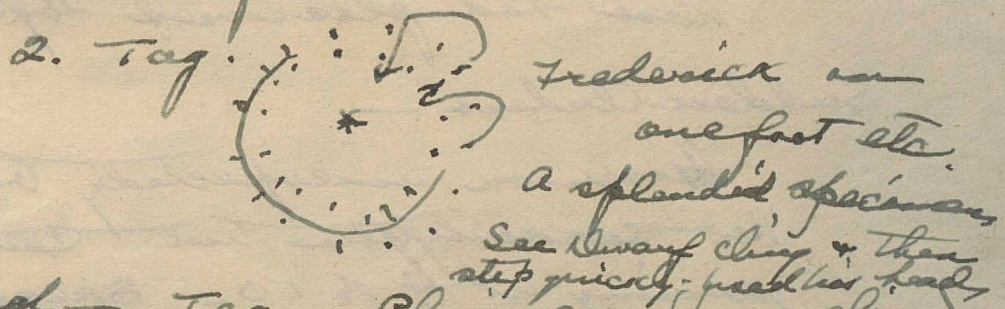 2. Tag.
Frederick on
one foot etc.
A splendid specimen,
See Dwarf cling & then
step quickly; his head,
Tag